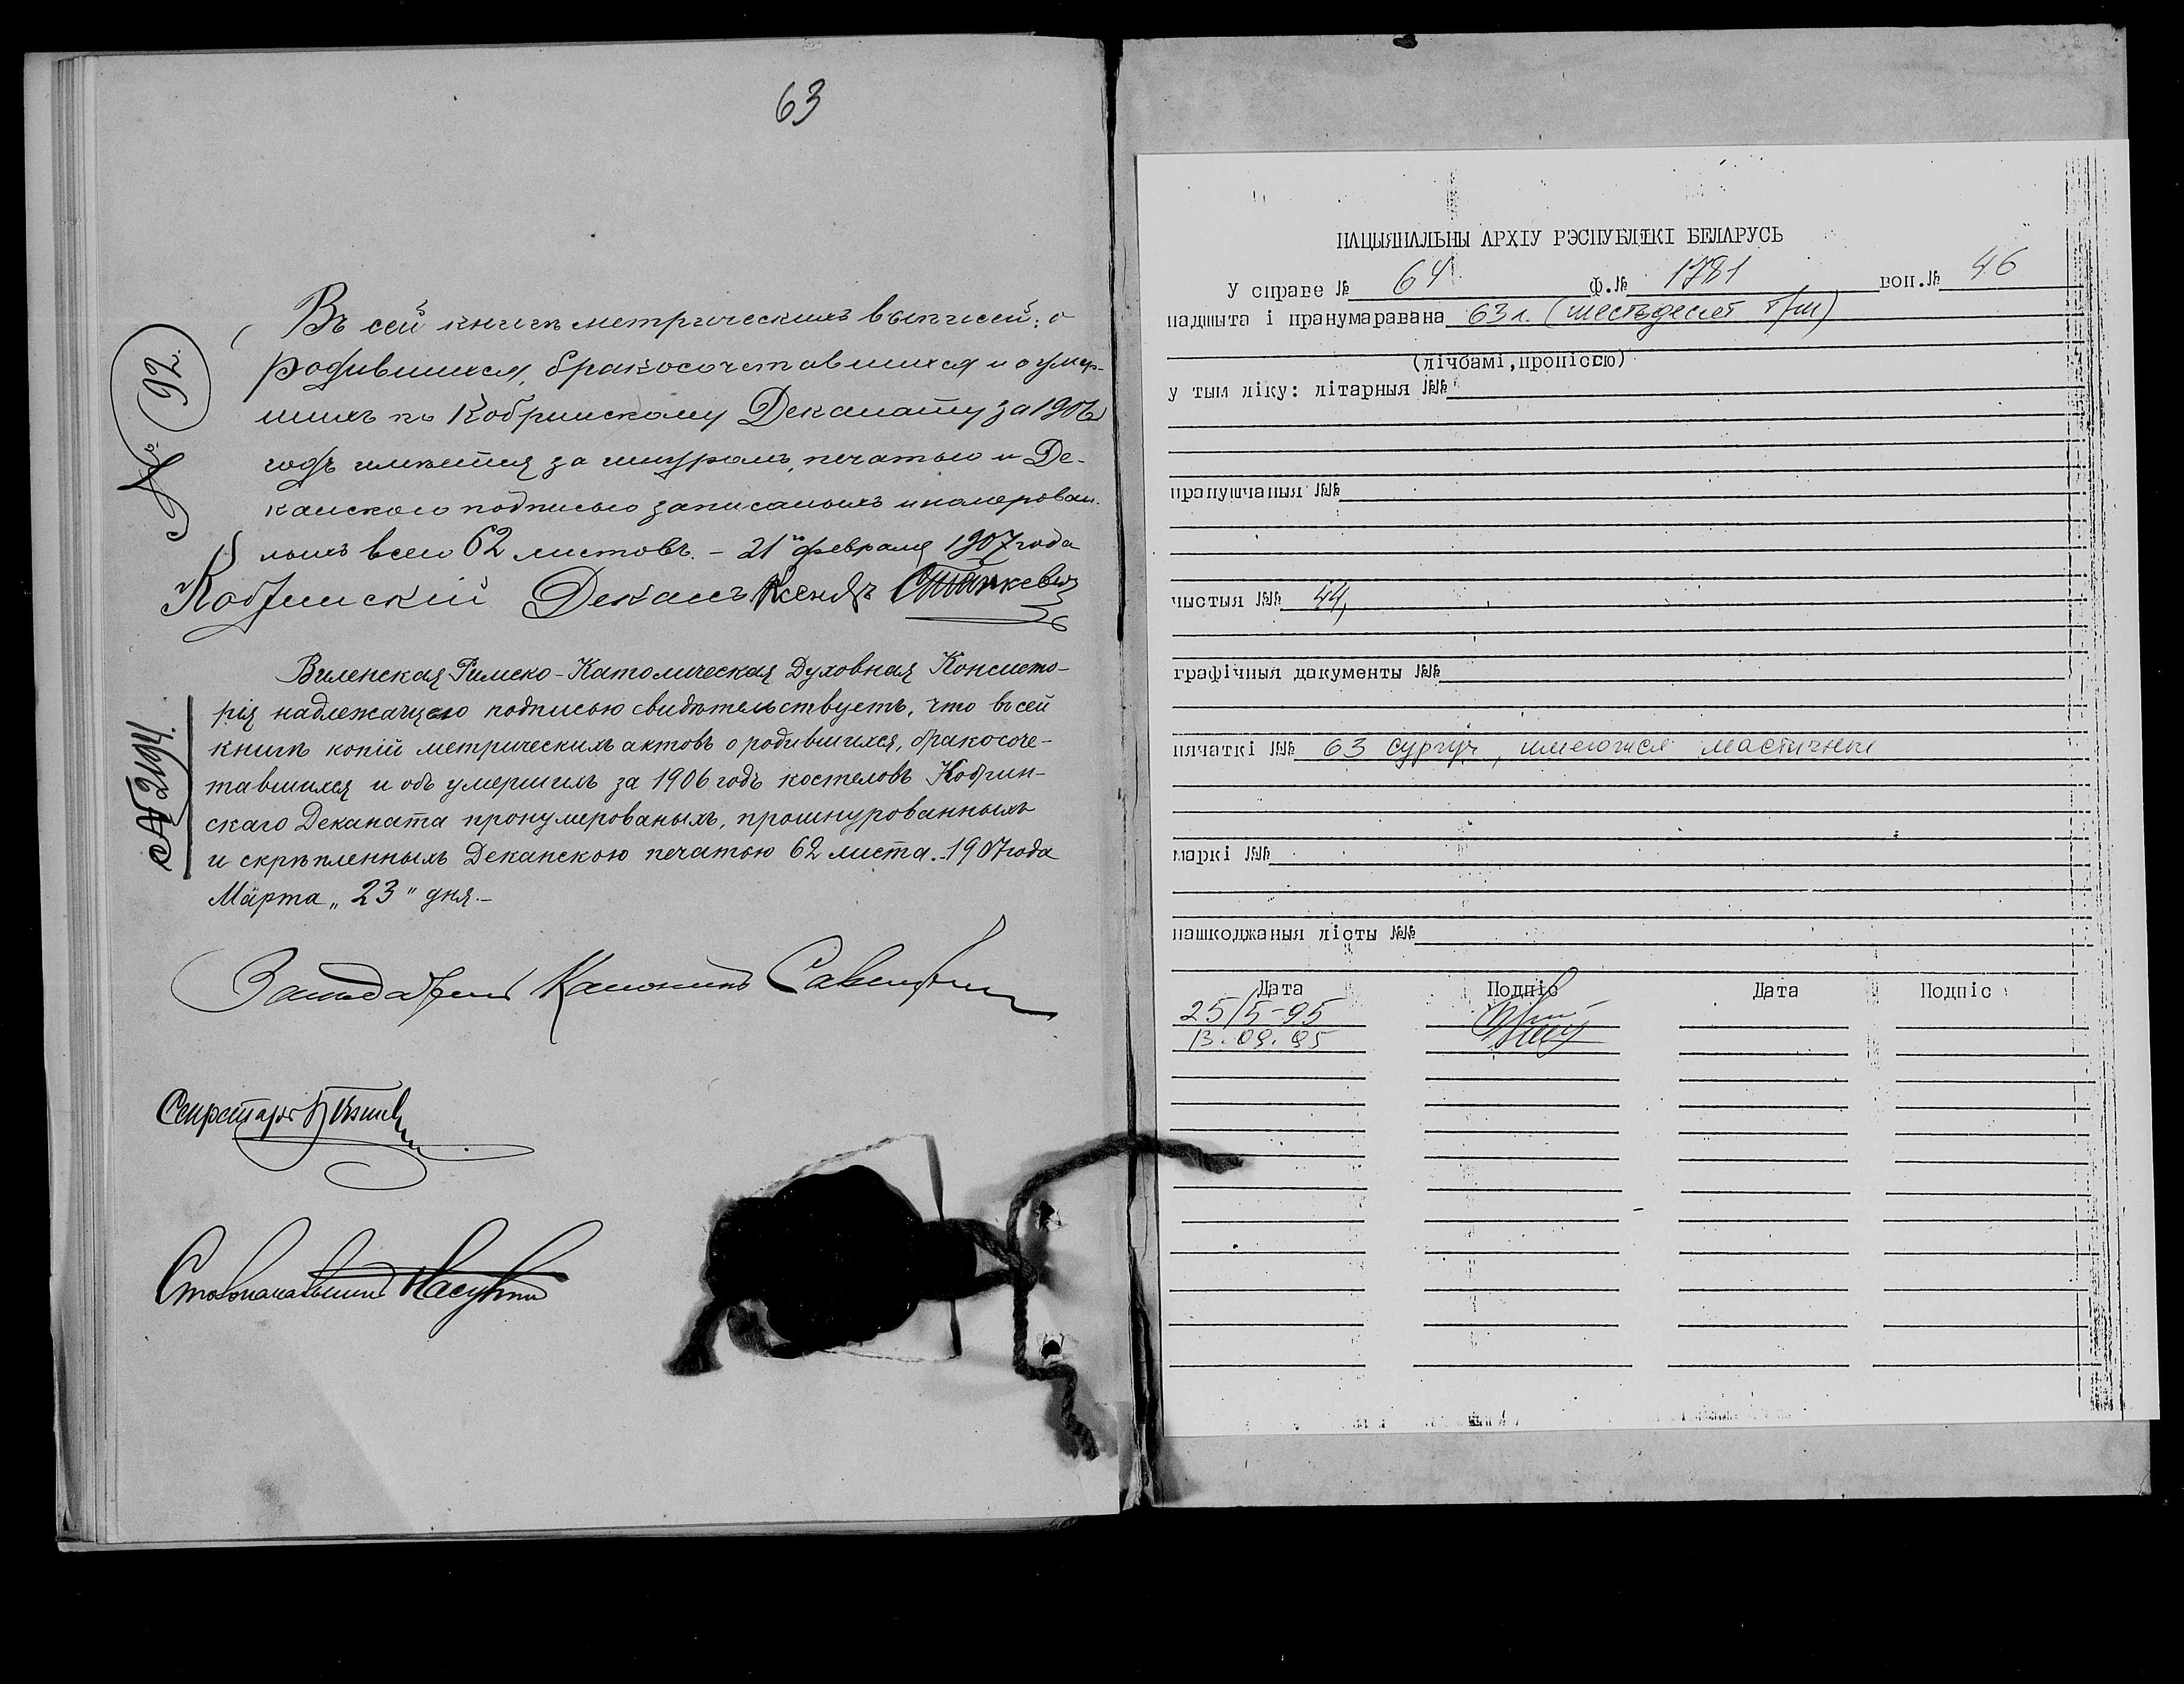 63
Въ сей книгѣ метрическихъ выписей: о
родившихся, бракосочетавшихся и о умер-
шихъ по Кобринскому Деканату за 1906
годъ имѣется за шнуромъ, печатью и Де-
канскою подписью записаныхъ и намерован-
ныхъ всего 62 листовъ. – 21го февраля 1907 года
Кобринскій Деканъ Ксендзъ Станкевичъ
№ 92.
Виленская Римско-Католическая Духовная Консисто-
рія надлежащею подписью свидѣтельствуетъ, что въ сей
книгѣ копій метрическихъ актовъ о родившихся, бракосоче-
тавшихся и объ умершихъ за 1906 годъ костеловъ Кобрин-
скаго Деканата пронумерованыхъ, прошнурованныхъ
и скрѣпленныхъ Деканскою печатью 62 листа. 1907 года
Марта „23" дня.–
№ 2194.
Засѣдатель Каноникъ
Секретарь
Столоначальникъ
НАЦЫЯНАЛЬНЫ АРХІУ РЭСПУБЛІКІ БЕЛАРУСЬ
У справе № 64 ф.№ 1781 воп.№ 46
падшыта і пранумаравана 63 л. (шестьдесят три)
(лічбамі,пропіссю)
у тым ліку: літарныя №№
прапушчаныя №№
чыстыя №№ 44,
графічныя дакументы №№
пячаткі №№ 63 сургуч, имеются мастичные
маркі №№
пашкоджаныя лісты №№
Дата Подпіс Дата Подпіс
25/5-95
13.09.95